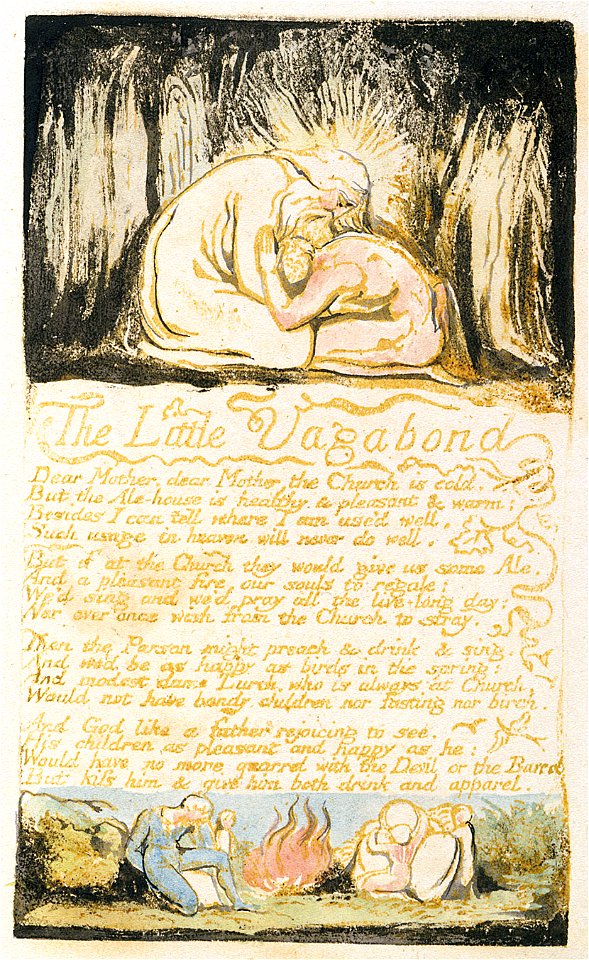 The Little Vagabond
Dear Mother, dear Mother, the Church is cold.
But the Ale-house is healthy & pleasant & warm;
Besides I can tell where I am use'd well,
Such usage in heaven will never do well.
But if at the Church they would give us some Ale.
And a pleasant fire, our souls to regale;
We'd sing and we'd pray all the live-long day;
Nor ever once wish from the Church to stray.
Then the Parson might preach & drink & sing.
And we'd be as happy as birds in the spring:
And modest dame Lurch, who is always at Church,
Would not have bandy children nor fasting nor birch.
And God like a father rejoicing to see.
His children as pleasant and happy as he:
Would have no more quarrel with the Devil or the Barrel
But kiss him & give him both drink and apparel.